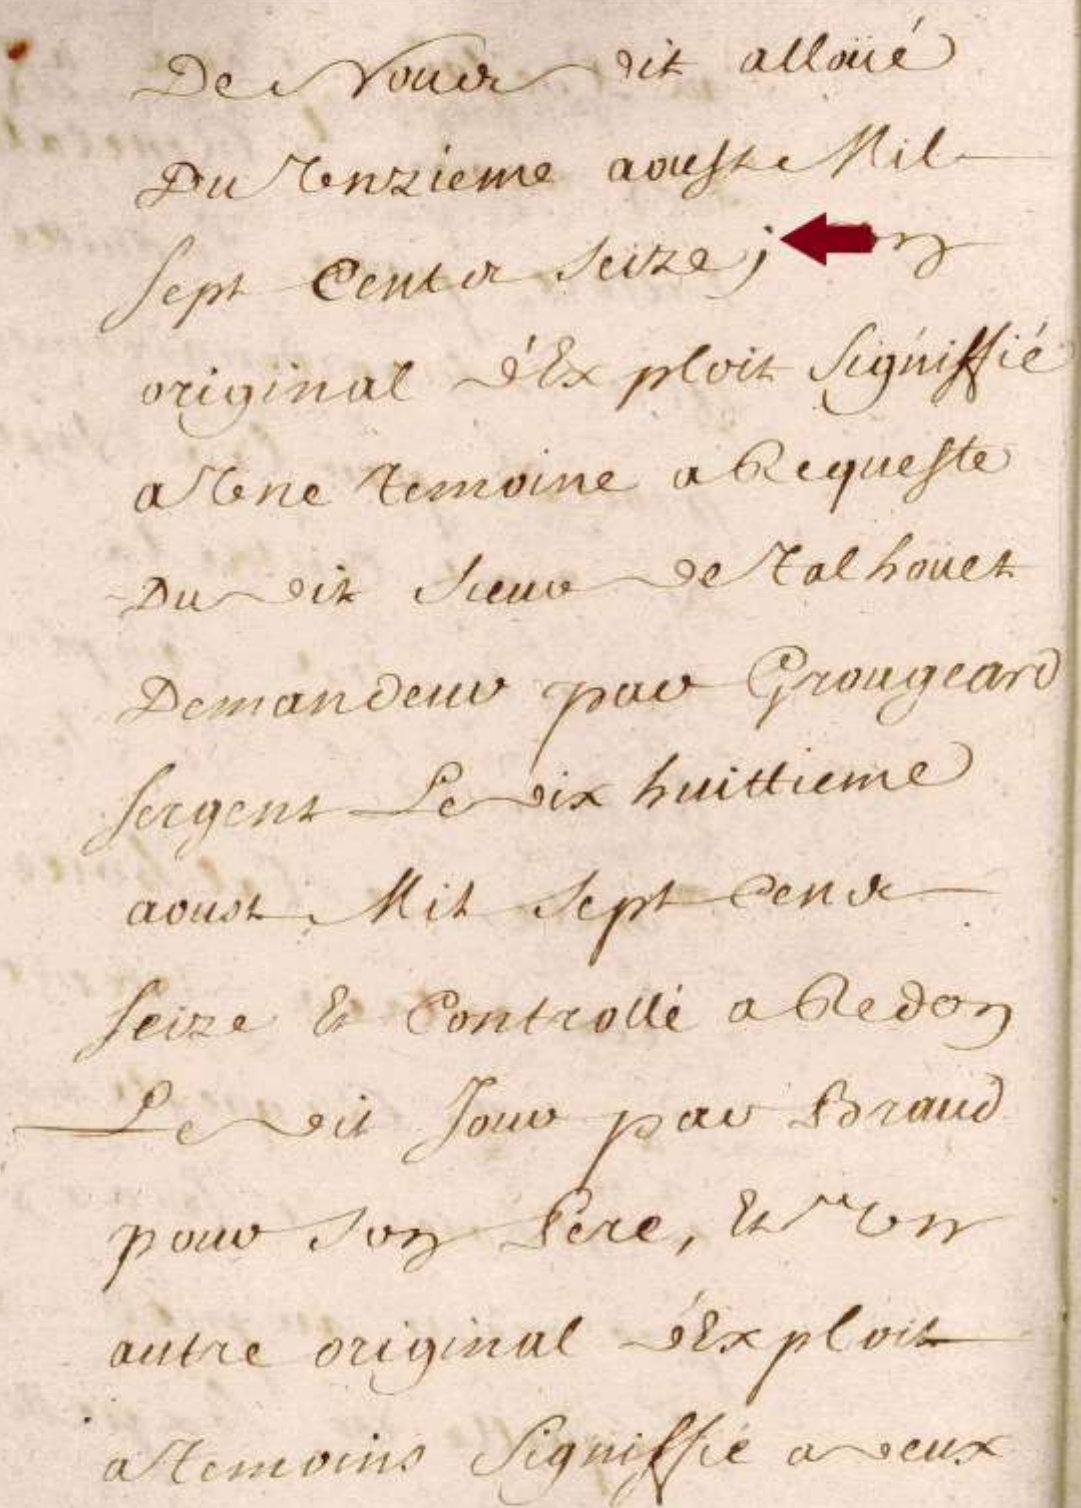 De Nous dit alloüé
Du Unzieme aoust Mil
sept Cents seize; Un
original d'Exploit signiffié
a Une temoine a Requeste
Du dit sieur de Talhouet
Demandeur par Grougeard
sergent Le dix huittieme
aoust Mil sept Cens
seize Et Controllé a Redon
Le dit Jour par Braud
pour son Pere, Et Un
autre original d'Exploit
a temoins signiffié a deux